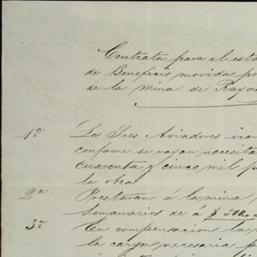 Contrata para el est
de Beneficio movida p
de la Mina de Raya
1ª Los Sres Aviadores iran
confome se vayan necesita
cuarenta y cinco mil p
la obra
2ª Prestaran á la mina,
Semanarios de á $ 500
3ª En compensacion la
la carga necesaria p